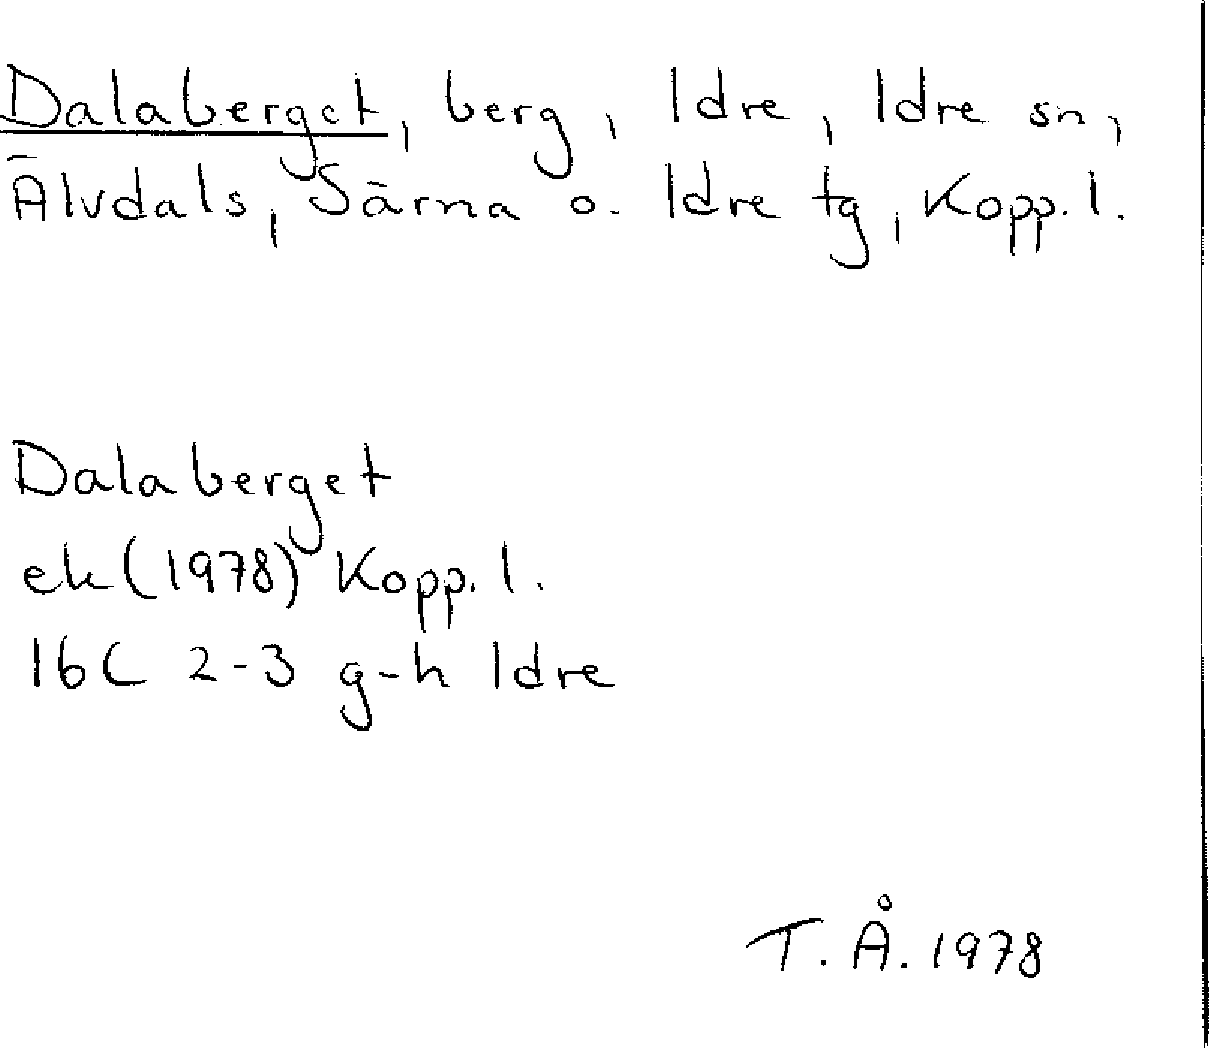 Dalaberget, berg, Idre, Idre sn,
Älvdals, Särna o. Idre tg, Kopp. l.
Dalaberget
ek (1978) Kopp. l.
16C 2-3 g-h Idre
T. Å. 1978